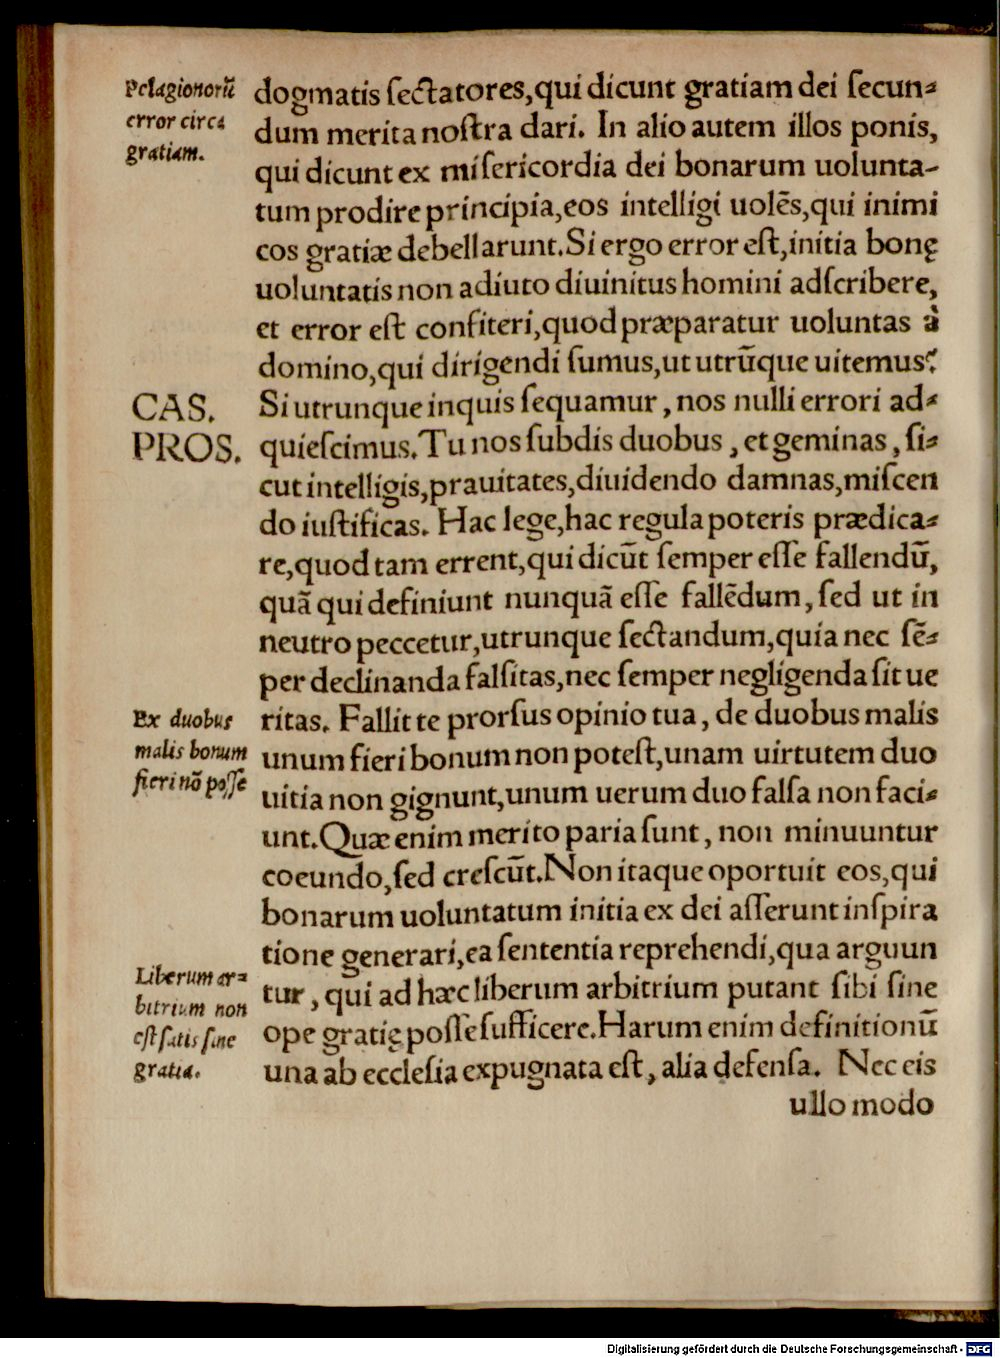 Pelagionorũ
error circa
gratiam.
dogmatis ſectatores,qui dicunt gratiam dei ſecun⸗
dum merita noſtra dari. In alio autem illos ponis,
qui dicunt ex miſericordia dei bonarum uolunta-
tum prodire principia,eos intelligi uolẽs,qui inimi
cos gratiæ debellarunt.Si ergo error eſt,initia bonę
uoluntatis non adiuto diuinitus homini adſcribere,
et error eſt confiteri,quod præparatur uoluntas à
domino,qui dirigendi ſumus,ut utrũque uitemus?
CAS.
PROS.
Si utrunque inquis ſequamur, nos nulli errori ad⸗
quieſcimus.Tu nos ſubdis duobus, et geminas, ſi⸗
cut intelligis,prauitates,diuidendo damnas,miſcen
do iuſtificas. Hac lege,hac regula poteris prædica⸗
re,quod tam errent,qui dicũt ſemper eſſe fallendũ,
quã qui definiunt nunquã eſſe fallẽdum, ſed ut in
neutro peccetur,utrunque ſectandum,quia nec ſẽ⸗
per declinanda falſitas,nec ſemper negligenda ſit ue
ritas. Fallit te prorſus opinio tua, de duobus malis
unum fieri bonum non poteſt,unam uirtutem duo
uitia non gignunt,unum uerum duo falſa non faci⸗
unt.Quæ enim merito paria ſunt, non minuuntur
coeundo,ſed creſcũt.Non itaque oportuit eos,qui
bonarum uoluntatum initia ex dei aſſerunt inſpira
tione generari,ea ſententia reprehendi,qua arguun
tur, qui ad hæc liberum arbitrium putant ſibi ſine
ope gratię poſſe ſufficere.Harum enim definitionũ
una ab eccleſia expugnata eſt, alia defenſa. Nec eis
ullo modo
Ex duobus
malis bonum
fieri nõ poſſe
Liberum ar⸗
bitrium non
eſt ſatis ſine
gratia.
Digitalisierung gefördert durch die Deutsche Forschungsgemeinschaft - DFG